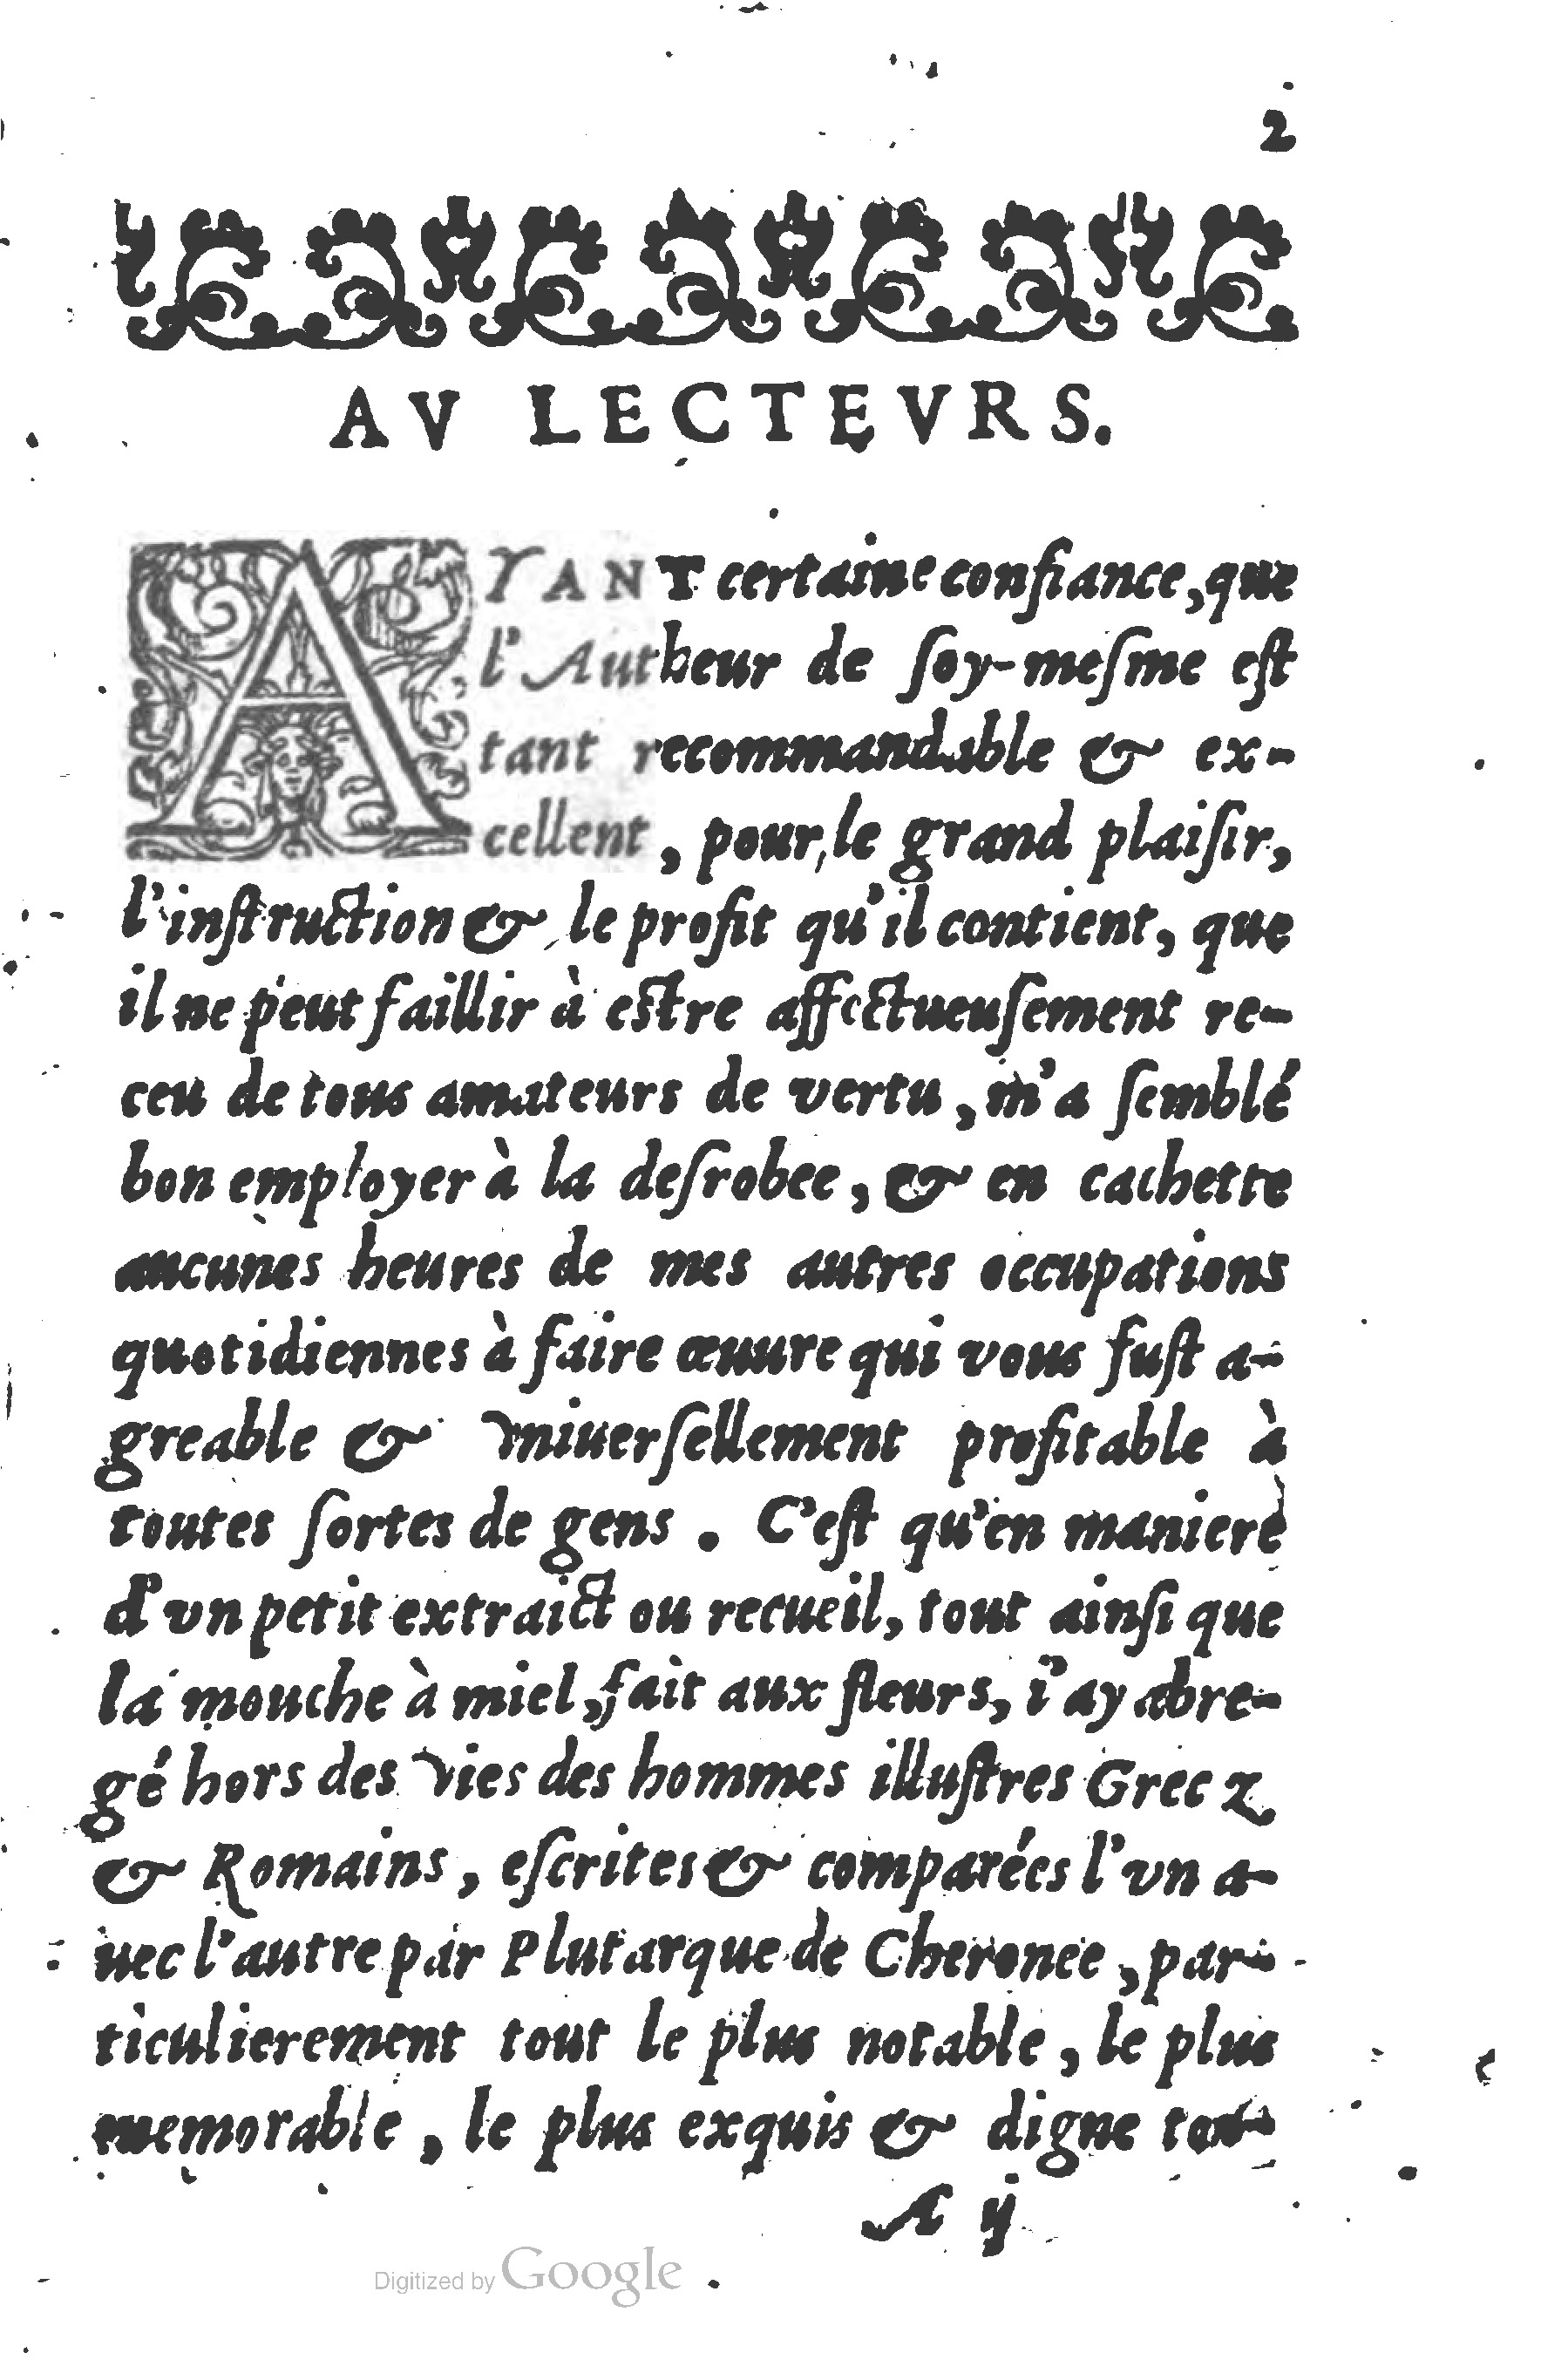 2
AV LECTEVRS.
AYANT certaine confiance, que
l'Autheur de ſoy-meſme eſt
tant recommandable & ex-
cellent, pour le grand plaiſir,
l'inſtruction & le profit qu'il contient, que
il ne peut faillir à eſtre affectueuſement re-
ceu de tous amateurs de vertu, m'a ſemblé
bon employer à la deſrobee, & en cachette
aucunes heures de mes autres occupations
quotidiennes à faire œuure qui vous fuſt a-
greable & vniuerſellement profitable à
toutes ſortes de gens. C'eſt qu'en maniere
d'vn petit extraict ou recueil, tout ainſi que
la mouche à miel, fait aux fleurs, i'ay abre-
gé hors des vies des hommes illuſtres Grecz
& Romains, eſcrites & comparées l'vn a-
uec l'autre par Plutarque de Cheronee, par-
ticulierement tout le plus notable, le plus
memorable, le plus exquis & digne tou-
A ij
Digitized by Google